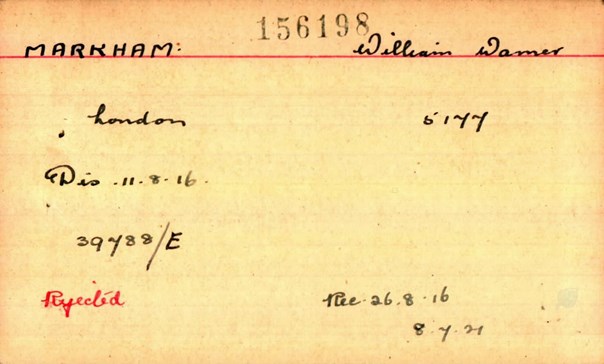 156198
MARKHAM: William Warner
London 5177
Dis. 11.8.16.
39788/E
Rejected Rec 26.8.16
8.7.21